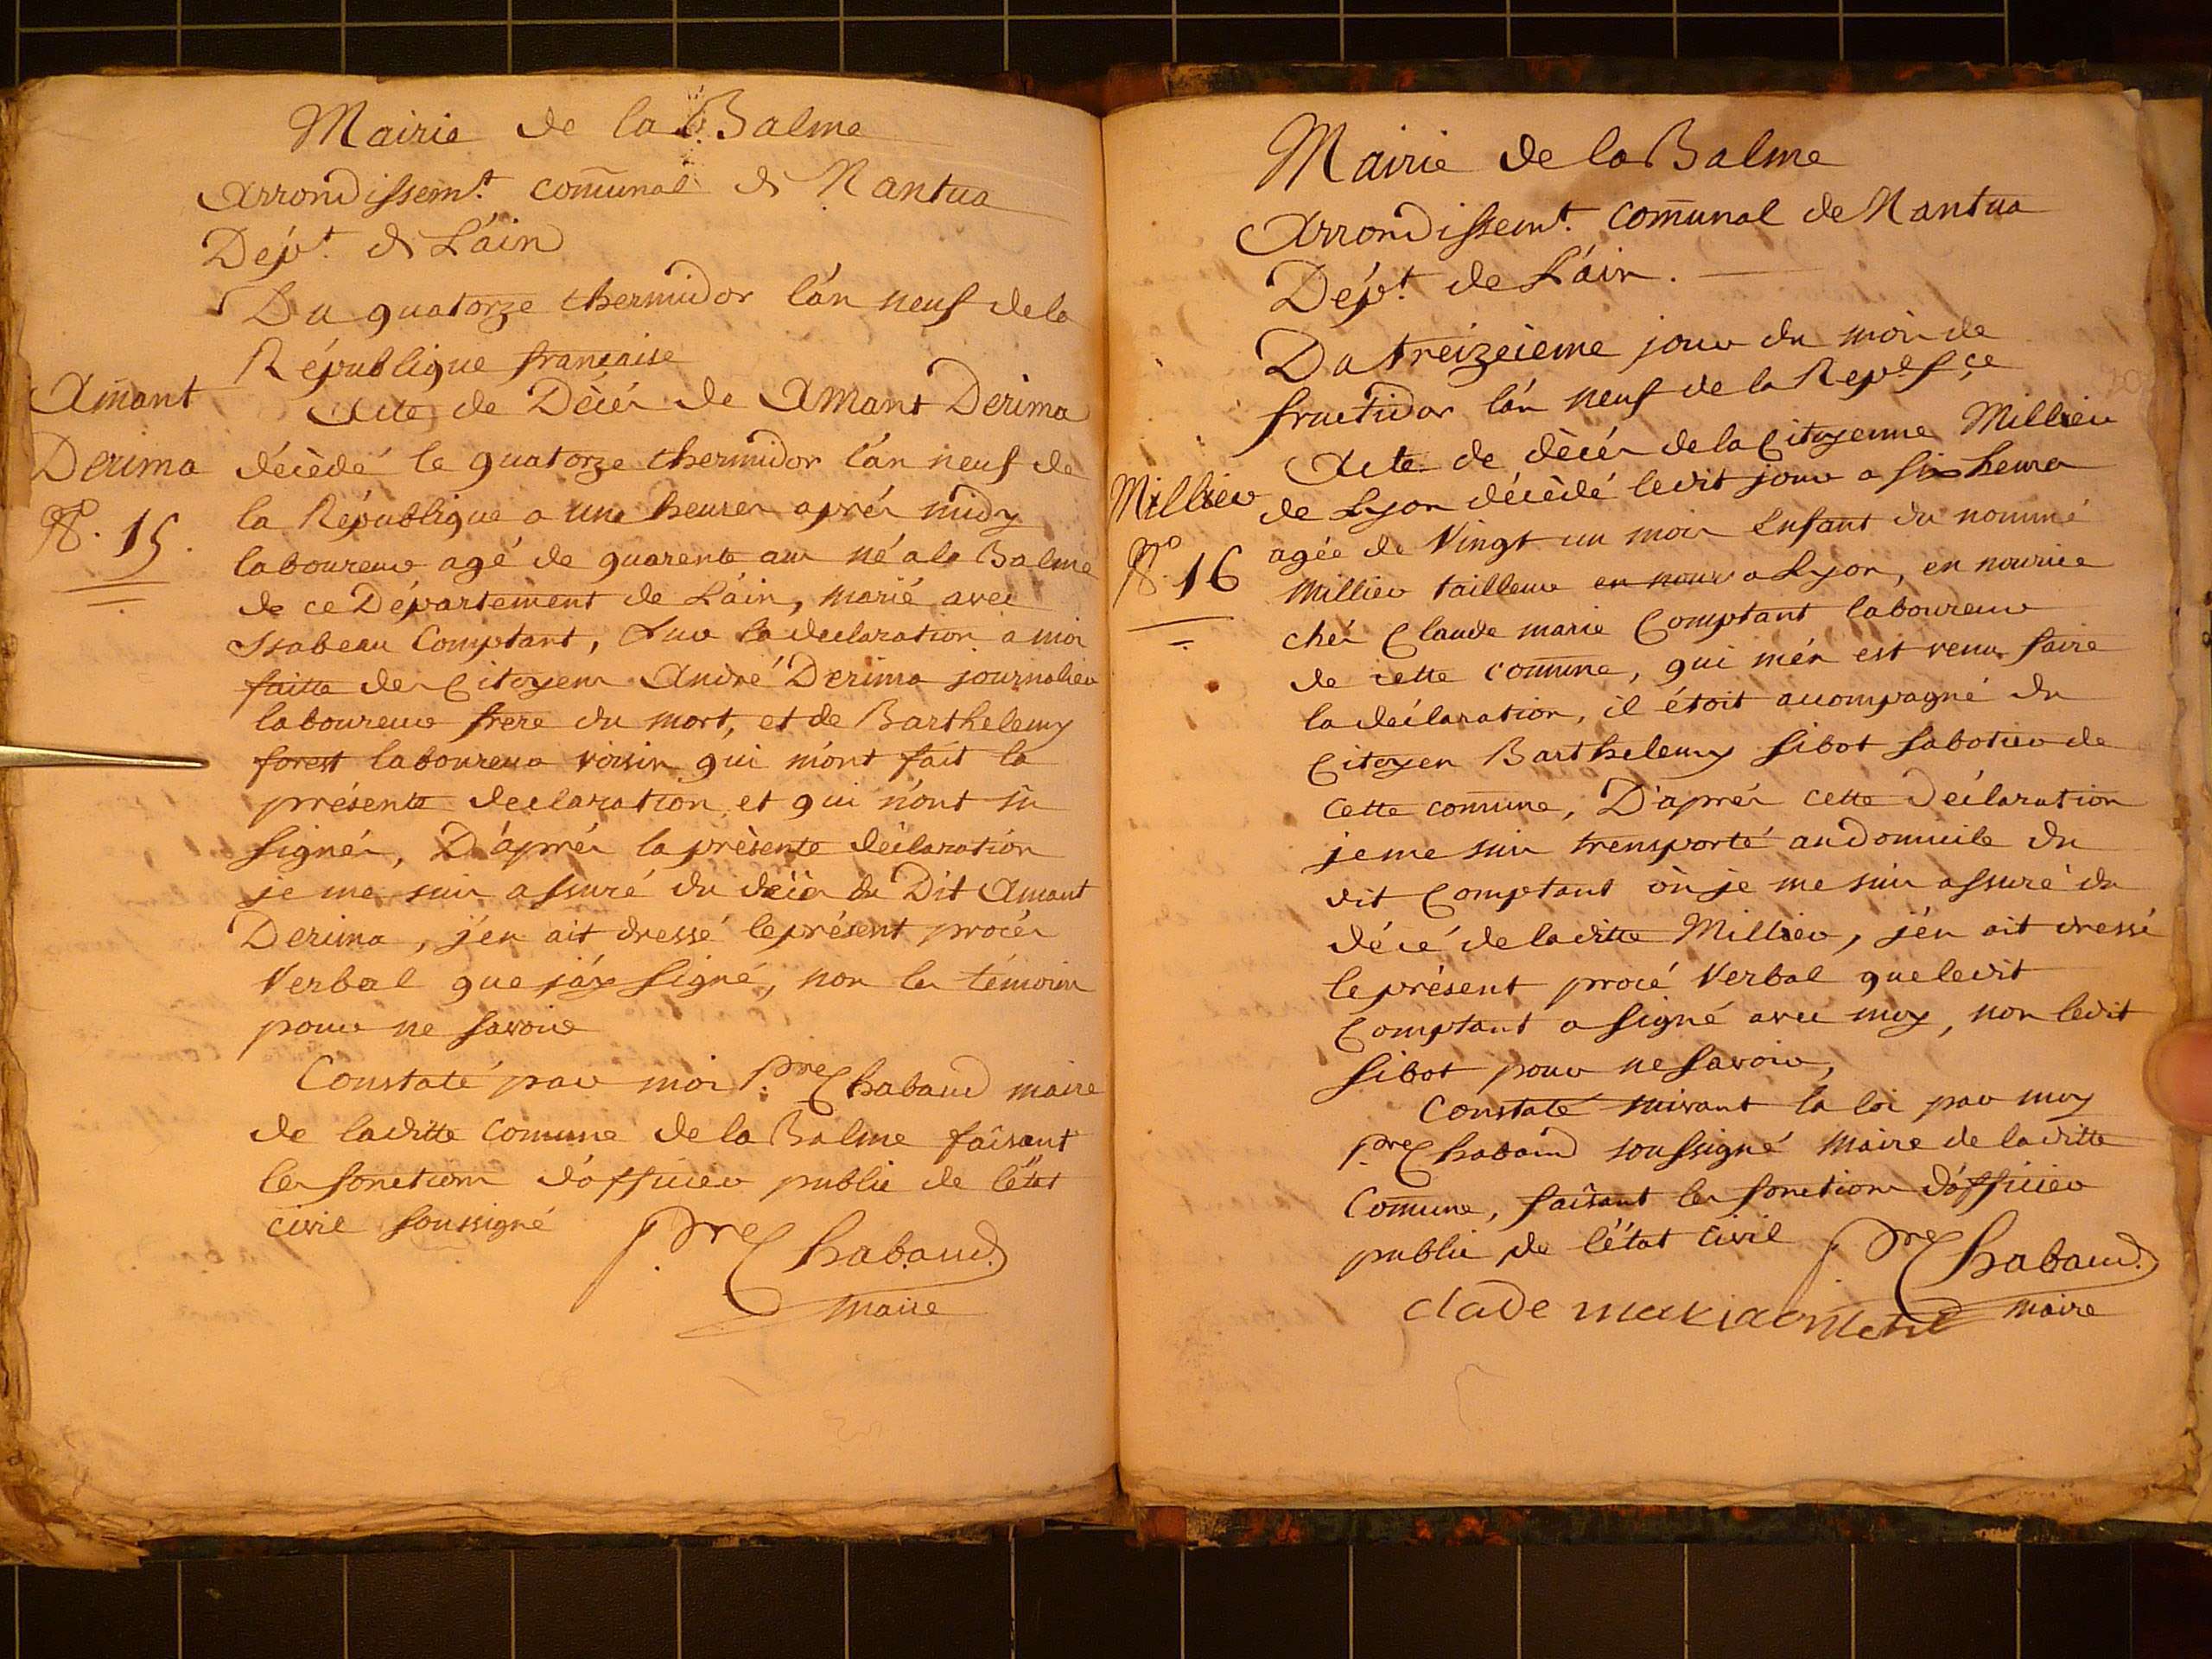 Mairie de la Balme
Arrondissemt. comunal de Nantua
Dépt. de L'ain
Du quatorze thermidor l'an neuf de la
République francaise
Amant
Derima
No. 15.
Acte de Décès de Amant Derima
décèdé le quatorze thermidor l'an neuf de
la République a une heures après midy
laboureur agé de quarente ans né a la Balme
de ce Département de L'ain, marié avec
Isabeau Comptant, Sur la declaration a moi
faitte des Citoyens André Derima journalier
laboureur frere du mort, et de Barthelemy
forest laboureur voisin qui m'ont fait la
présente declaration et qui n'ont sù
signés, D'après la prèsente déclaration
je me suis assuré du décès du Dit Amant
Derima, j'en ait dressé le présent procès
Verbal que j'ay signé, non les témoins
pour ne savoir
Constaté par moi Pre. Chabaud maire
de laditte Comune de la Balme faisant
les fonctions d'officier public de l'état
civil soussigné
Pre Chabaud
maire
Mairie de la Balme
Arrondissemt. comunal de Nantua
Dépt. de L'ain.
Du treizeieme jour du mois de
fructidor l'an neuf de la Repe. fçe
Millieu
No. 16
Acte de décès de la Citoyenne Millieu
de Lyon décèdé ledit jour a six heures
agée de Vingt un mois Enfant du nommé
Millieu tailleur en nour a Lyon, en nourice
chés Claude marie Comptant laboureur
de cette comune, qui m'en est venu faire
la déclaration, il étoit accompagné du
Citoyen Barthelemy Sibot sabotier de
cette comune, D'après cette Déclaration
je me suis transporté au domicile du
dit Comptant où je me suis assuré du
décé de laditte Millieu, j'en ait dressé
le présent procé Verbal que ledit
Comptant a signé avec moy, non ledit
Sibot pour ne savoir,
Constaté suivant la loi par moy
Pre Chabaud soussigné Maire de laditte
Comune, faisant les fonctions d'officier
public de l'état Civil
Pre Chabaud.
maire